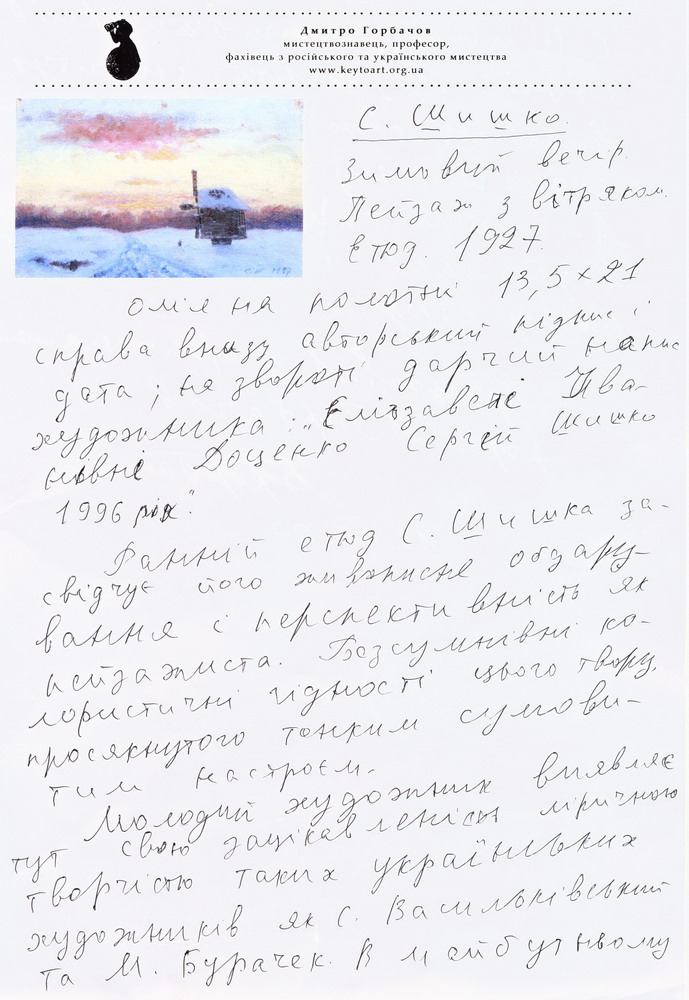 Дмитро Горбачов
мистецтвознавець, професор,
фахівець з російського та українського мистецтва
www.keytoart.org.ua
С. Шишко.
Зимовий вечір.
Пейзаж з вітряком.
Етюд. 1927.
Олія на полотні 13,5×21
справа внизу авторський підпис і
дата; на звороті дарчий напис
художника: „Єлізавєтє Іва-
новнє Доценко Сергєй Шишко
1996 рік".
Ранній етюд С. Шишка за-
свідчує його живописне обдару-
вання і перспективність як
пейзажиста. Безсумнівні ко-
лористичні гідності цього твору,
просякнутого тонким сумови-
тим настроєм.
Молодий художник виявляє
тут свою зацікавленість ліричною
творчістю таких українських
художників як С. Васильківський
та М. Бурачек. В майбутньому